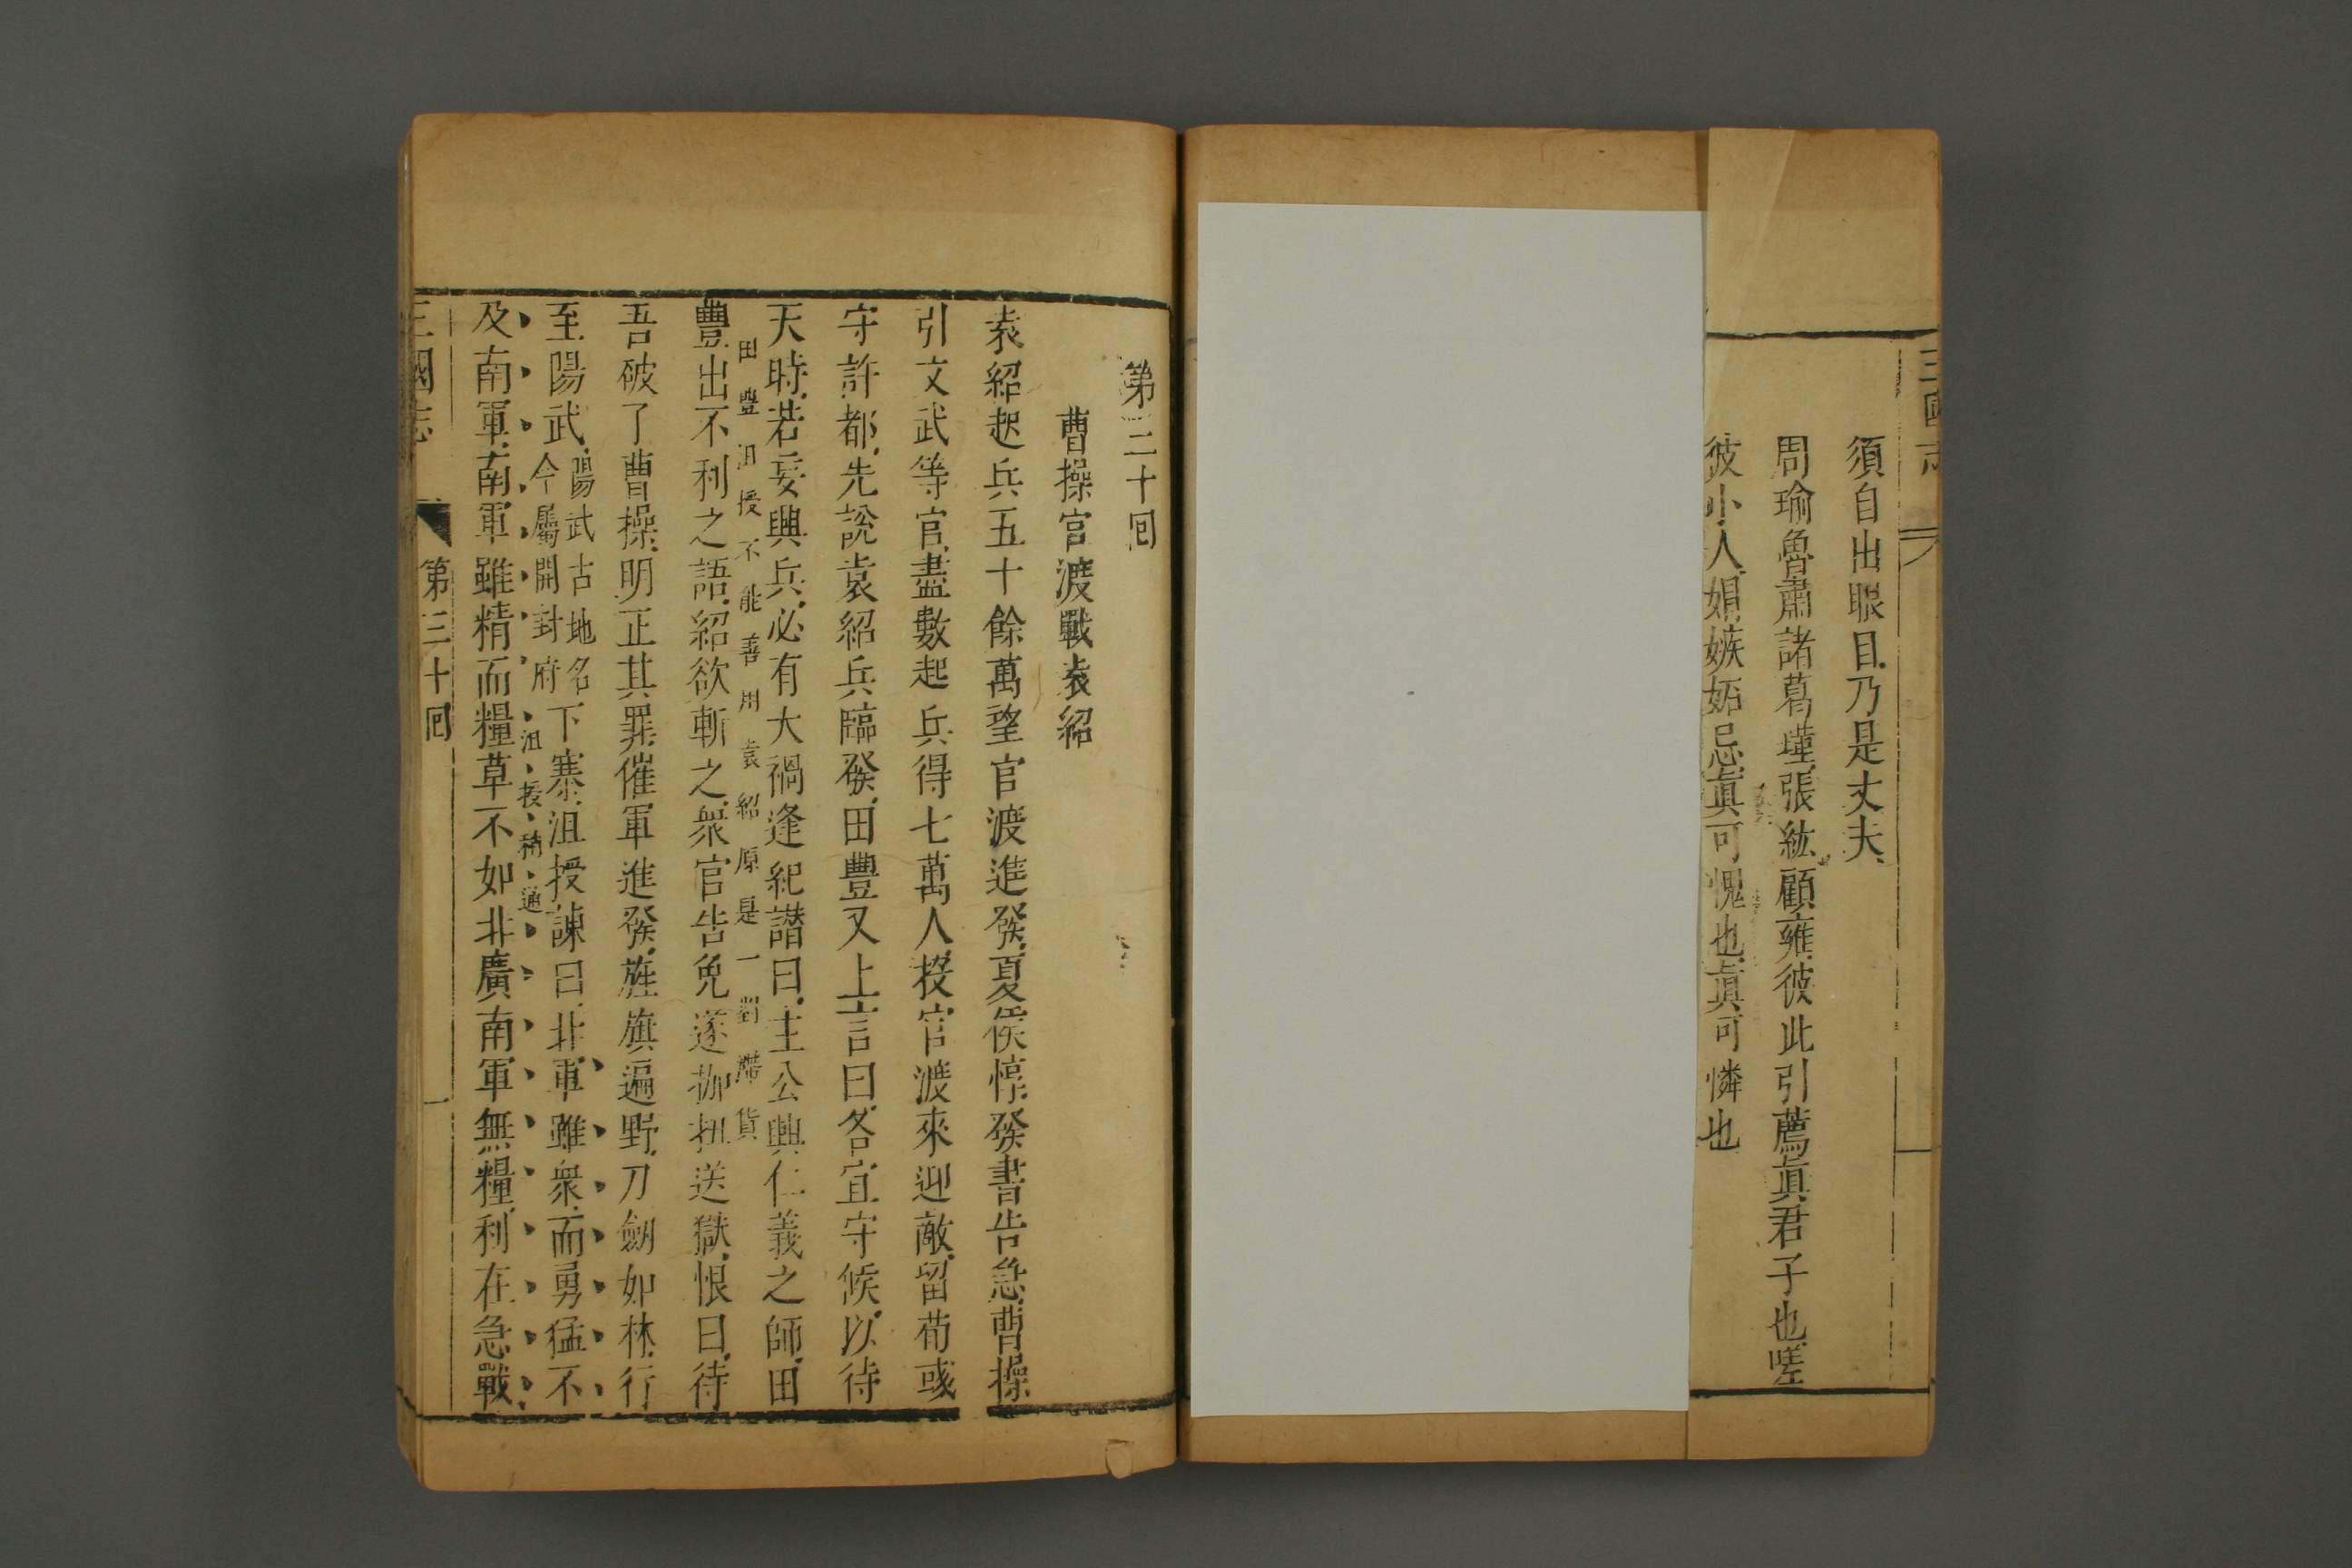 三國志
須自出眼目乃是丈夫
周瑜魯肅諸葛瑾張紘顧雍彼此引薦真君子也嗟
彼小人娼嫉妬忌真可愧也真可憐也
第三十回
曹操官渡戰袁紹
袁紹起兵五十餘萬望官渡進發夏侯惇發書告急曹操
引文武等官盡數起兵得七萬人投官渡來迎敵留荀彧
守許都先說袁紹兵臨發田豐又上言曰各宜守候以待
天時若妄興兵必有大禍逢紀譖曰主公興仁義之師田
田豐沮授不能善用袁紹原是一劉滯貨
豐出不利之語紹欲斬之衆官告免遂枷扭送獄恨曰待
吾破了曹操明正其罪催軍進發旌旗遍野刀劒如林行
至陽武陽武古地名今屬開封府下寨沮授諫曰北軍雖衆而勇猛不
沮授稍通
及南軍南軍雖精而糧草不如北廣南軍無糧利在急戰
三國志 第三十回 一